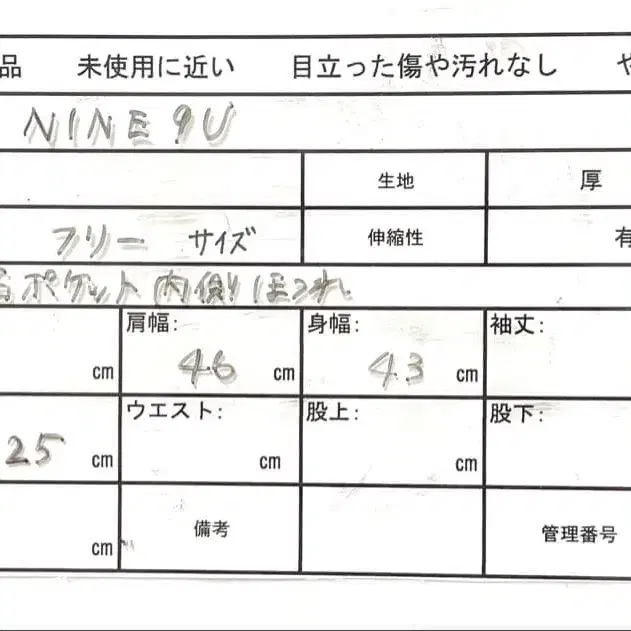 品 未使用に近い 目立った傷や汚れなし や
NINE 9U
生地 厚
フリー サイズ 伸縮性 有
ポケット内側ほつれ
肩幅: 身幅: 袖丈:
cm 46 cm 43 cm
ウエスト: 股上: 股下:
25 cm cm cm
cm 備考 管理番号